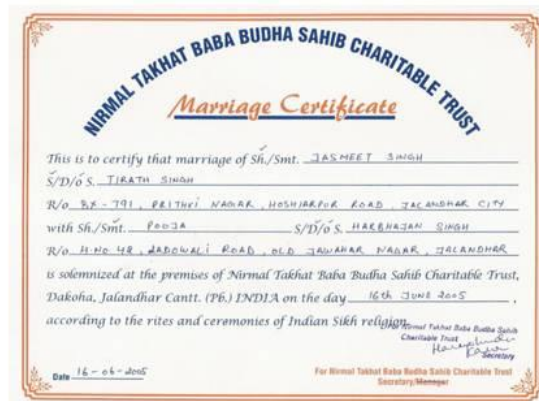 NIRMAL TAKHAT BABA BUDHA SAHIB CHARITABLE TRUST
Marriage Certificate
This is to certify that marriage of Sh./Smt. JASMEET SINGH
S/D/o S. TIRATH SINGH
R/o BX-791, PRITHVI NAGAR, HOSHIARPUR ROAD, JALANDHAR CITY
with Sh./Smt. POOJA S/D/o S. HARBHAJAN SINGH
R/o H.NO 48, LADOWALI ROAD, OLD JAWAHAR NAGAR, JALANDHAR
is solemnized at the premises of Nirmal Takhat Baba Budha Sahib Charitable Trust,
Dakoha, Jalandhar Cantt. (Pb.) INDIA on the day 16th JUNE 2005,
according to the rites and ceremonies of Indian Sikh religion.
For Nirmal Takhat Baba Budha Sahib
Charitable Trust
Secretary
Date 16-06-2005
For Nirmal Takhat Baba Budha Sahib Charitable Trust
Secretary/Manager